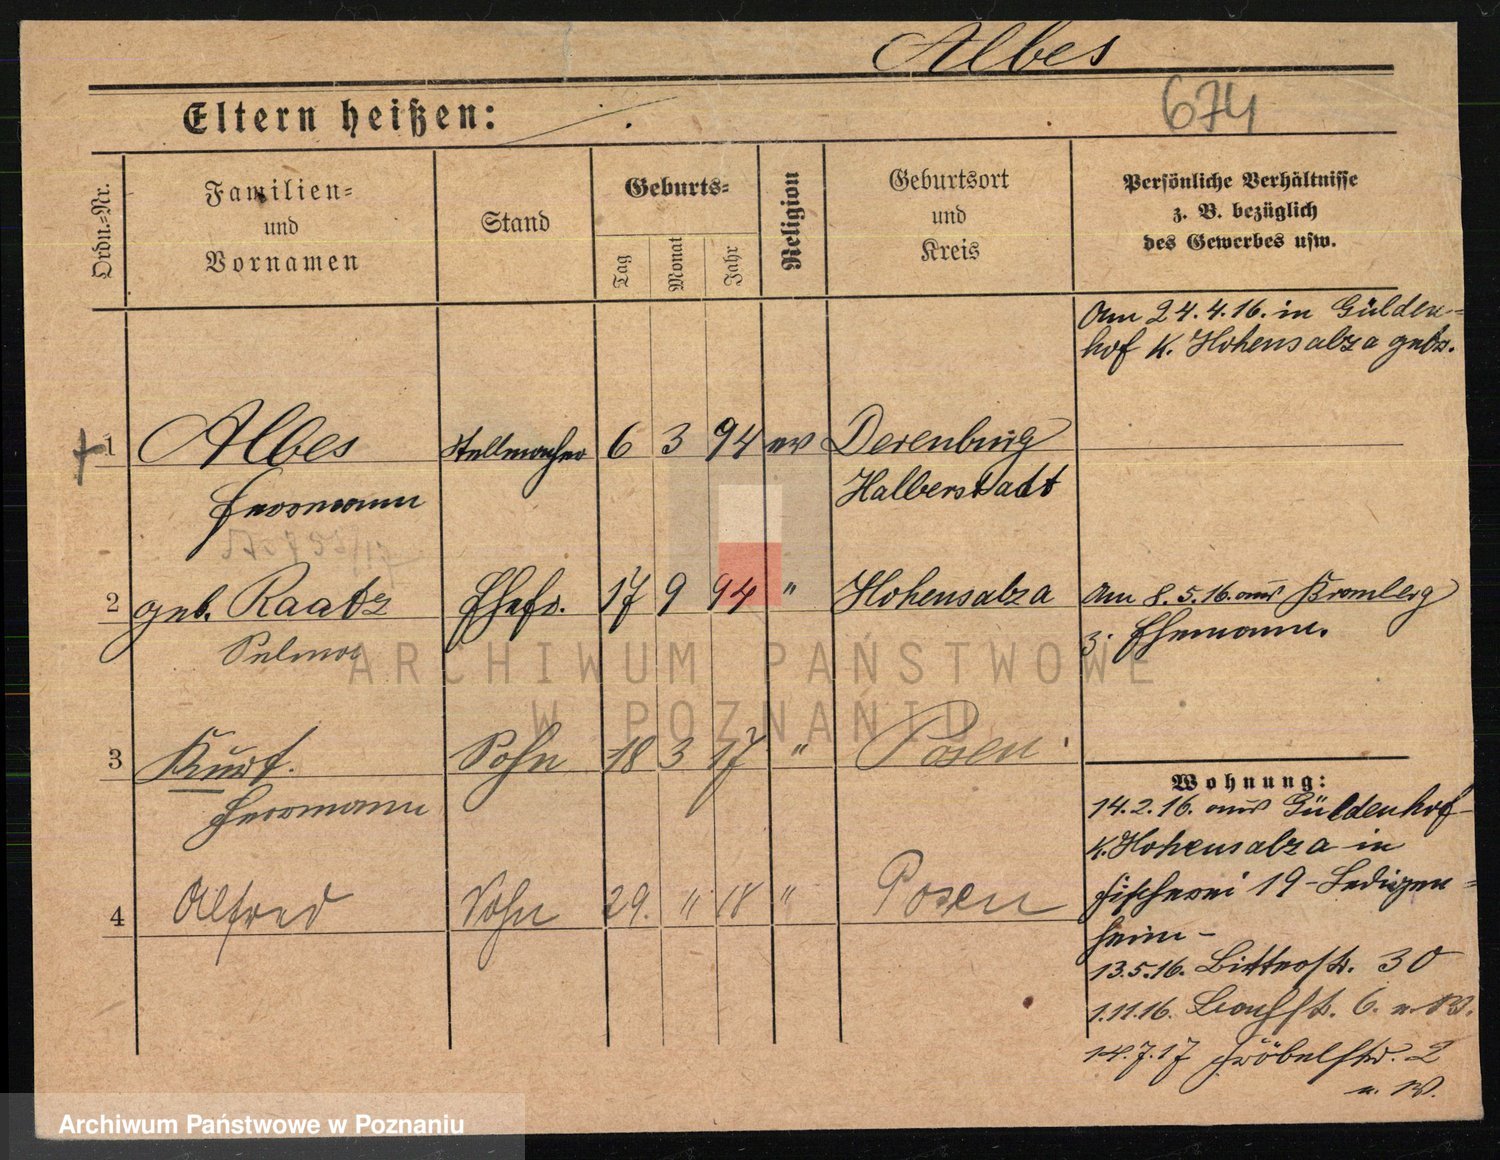 Albes
674
Eltern heißen: ∕.
Ordn.-Nr.
Familien-
und
Vornamen
Stand
Geburts-
Tag
Monat
Jahr
Religion
Geburtsort
und
Kreis
Persönliche Verhältnisse
z. B. bezüglich
des Gewerbes usw.
Am 24.4.16. in Gülden-
hof K. Hohensalza getr.
+ 1 Albes Stellmacher 6 3 94 ev Derenburg
Herrmann Halberstadt
2 geb. Raatz Ehefr. 17 9 94 " Hohensalza Am 8.5.16. aus Bromberg
Selma z. Ehemann.
3 Kurt Sohn 18 3 17 " Posen
Herrmann
Wohnung:
14.2.16. aus Güldenhof
K. Hohensalza in
Fischerei 19 - Ledigen-
heim -
4 Alfred Sohn 29. " 18 " Posen
13.5.16. Bitterstr. 30
1.11.16. Bachstr. 6. n. W.
14.7.17 Fröbelstr. 2
n. W.
ARCHIWUM PAŃSTWOWE
W POZNANIU
Archiwum Państwowe w Poznaniu